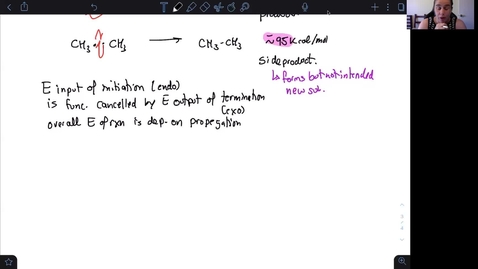 CH3 CH3 → CH3-CH3 ≈95 Kcal/mol
Side product.
↳ forms but not intended
new sub.
E input of initiation (endo)
is func. cancelled by E output of termination
(exo)
overall E of rxn is dep. on propegation